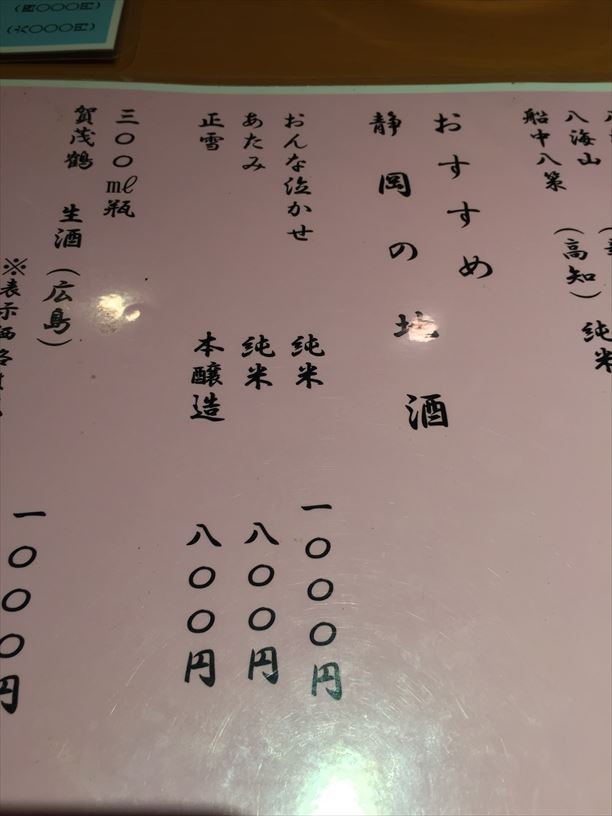 八海山
船中八策 (高知) 純米
おすすめ
静岡の地酒
おんな泣かせ 純米 一〇〇〇円
あたみ 純米 八〇〇円
正雪 本醸造 八〇〇円
三〇〇㎖瓶
賀茂鶴 生酒 (広島) 一〇〇〇円
※表示価格